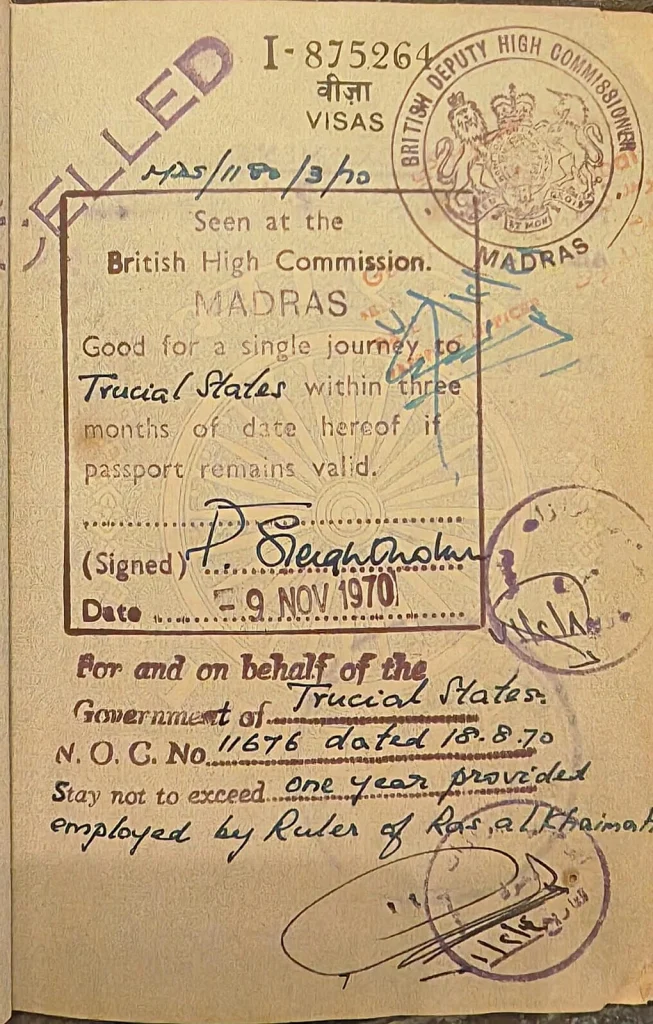 I-875264
वीज़ा
VISAS
CELLED
BRITISH DEPUTY HIGH COMMISSIONER
MADRAS
MDS/1180/3/70
Seen at the
British High Commission.
MADRAS
Good for a single journey to
Trucial States within three
months of date hereof if
passport remains valid.
(Signed) P.
Date - 9 NOV 1970
For and on behalf of the
Government of Trucial States.
N. O. C. No. 11676 dated 18.8.70
Stay not to exceed one year provided
employed by Ruler of Ras al Khaimah